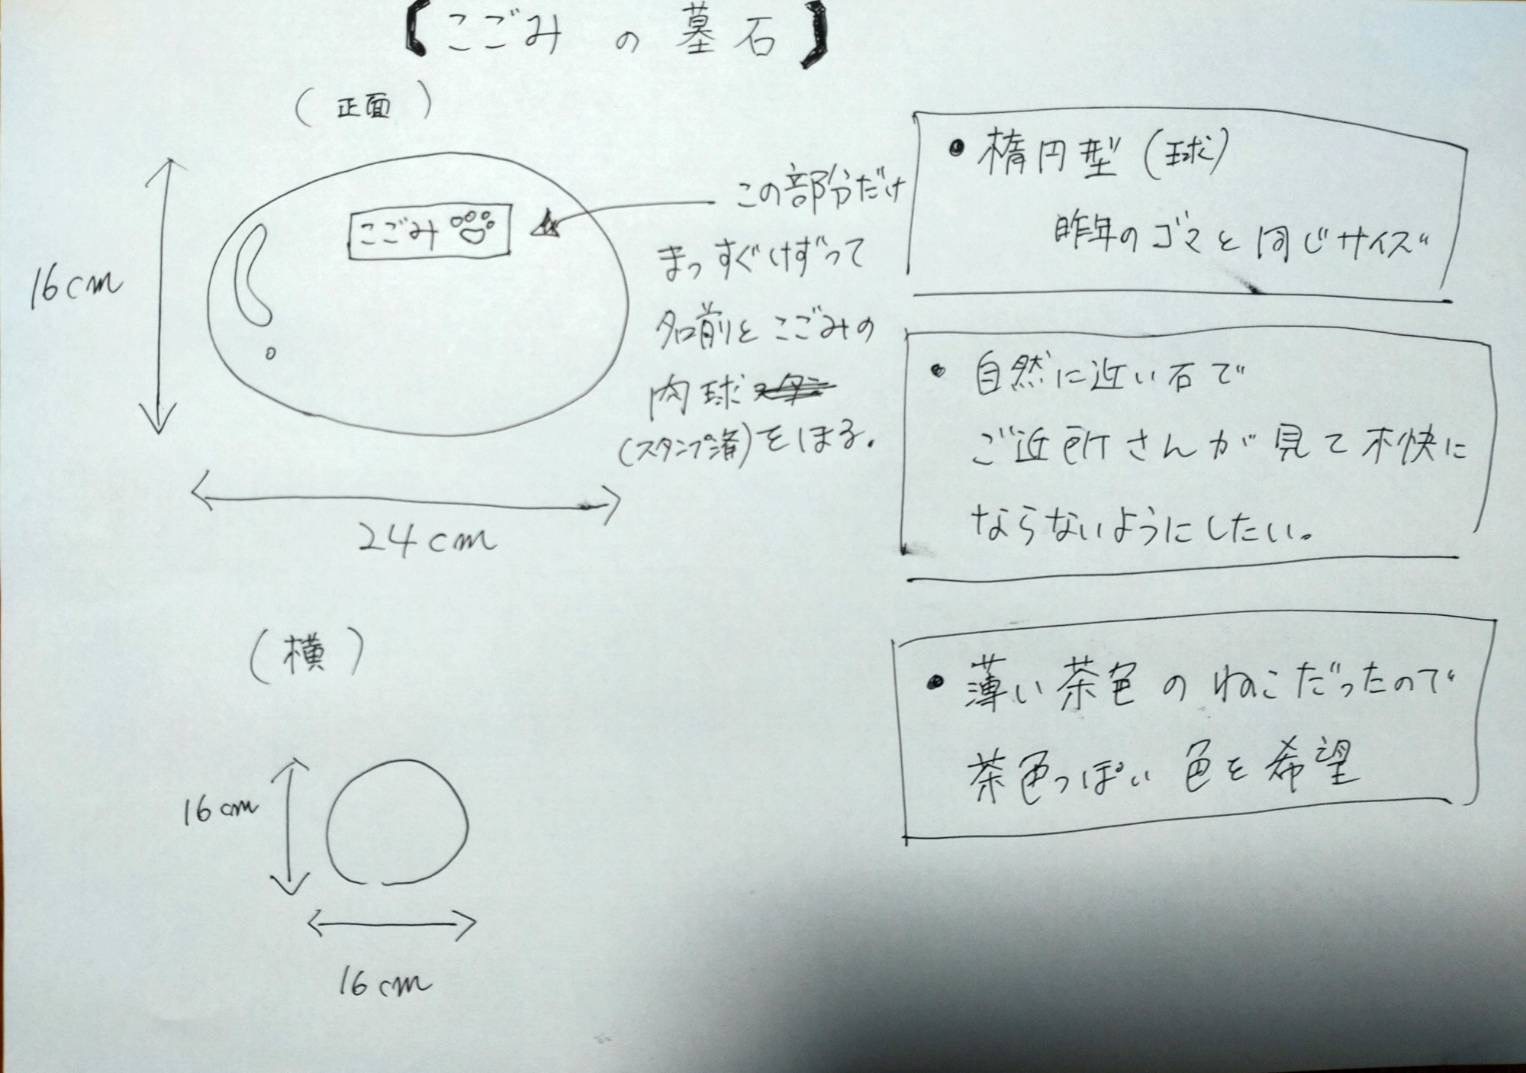 【こごみの墓石】
(正面)
16cm
こごみ
24cm
この部分だけ
まっすぐけずって
名前とこごみの
肉球
(スタンプ済)をほる。
(横)
16cm
16cm
・楕円型(球)
昨年のゴマと同じサイズ
・自然に近い石で
ご近所さんが見て不快に
ならないようにしたい。
・薄い茶色のねこだったので
茶色っぽい色を希望